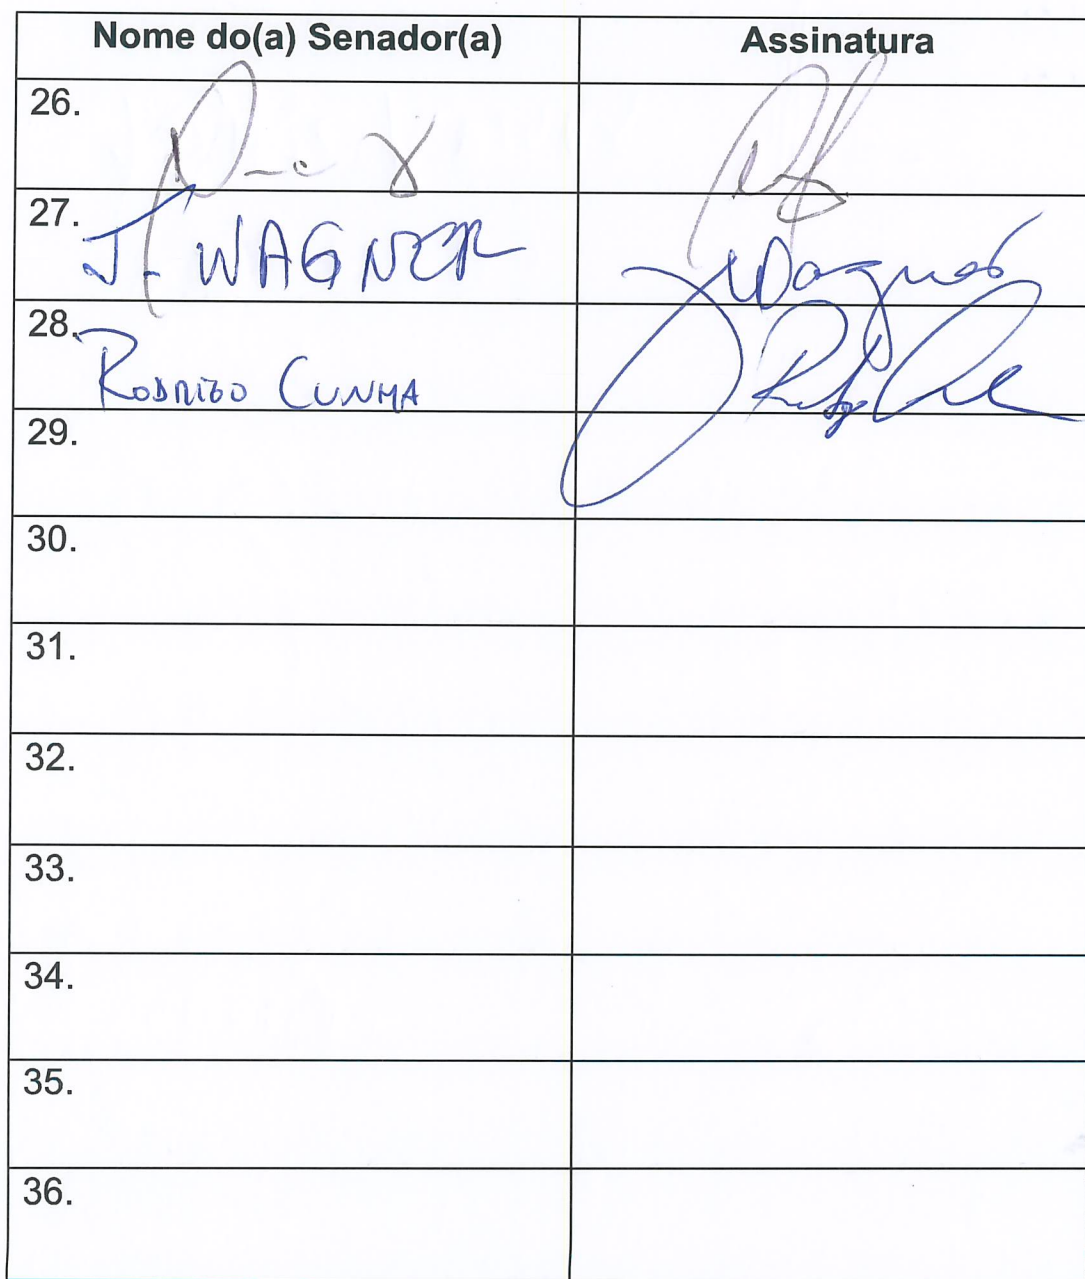 Nome do(a) Senador(a) Assinatura
26.
27. J. WAGNER JWagner
28. RODRIGO CUNHA
29.
30.
31.
32.
33.
34.
35.
36.